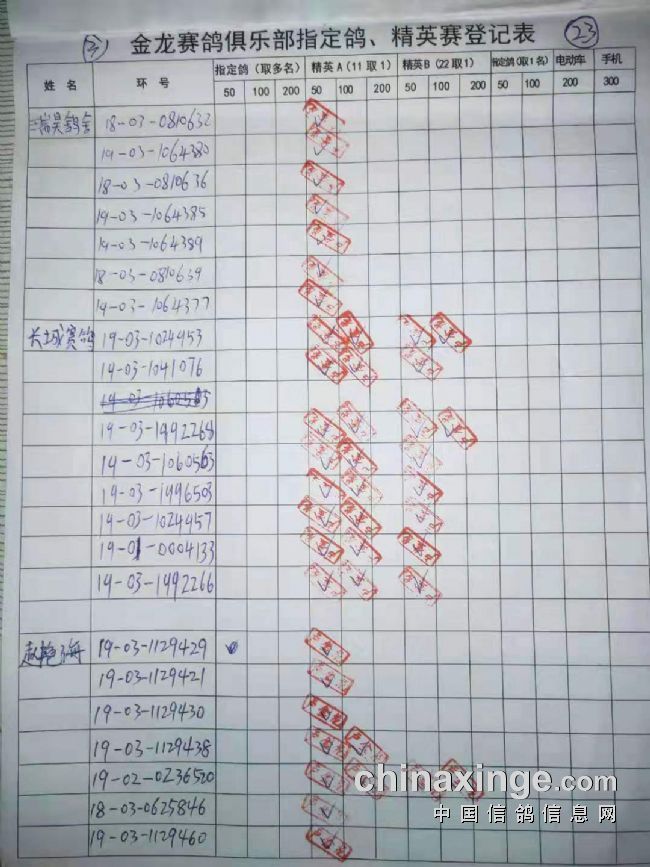 金龙赛鸽俱乐部指定鸽、精英赛登记表 23
姓名 环号 指定鸽（取多名） 精英A（11取1） 精英B（22取1） 指定鸽（取1名） 电动车 手机
50 100 200 50 100 200 50 100 200 50 100 200 300
18-03-0810632
19-03-1064380
18-03-0810636
19-03-1064385
19-03-1064389
18-03-0810639
19-03-1064377
长城赛鸽 19-03-1024953
19-03-1041076
19-03-1492268
19-03-1060563
19-03-1496503
19-03-1024957
19-01-0004133
19-03-1492266
赵艳海 19-03-1129429
19-03-1129421
19-03-1129430
19-03-1129438
19-02-0236520
18-03-0625846
19-03-1129460
chinaxinge.com
中国信鸽信息网